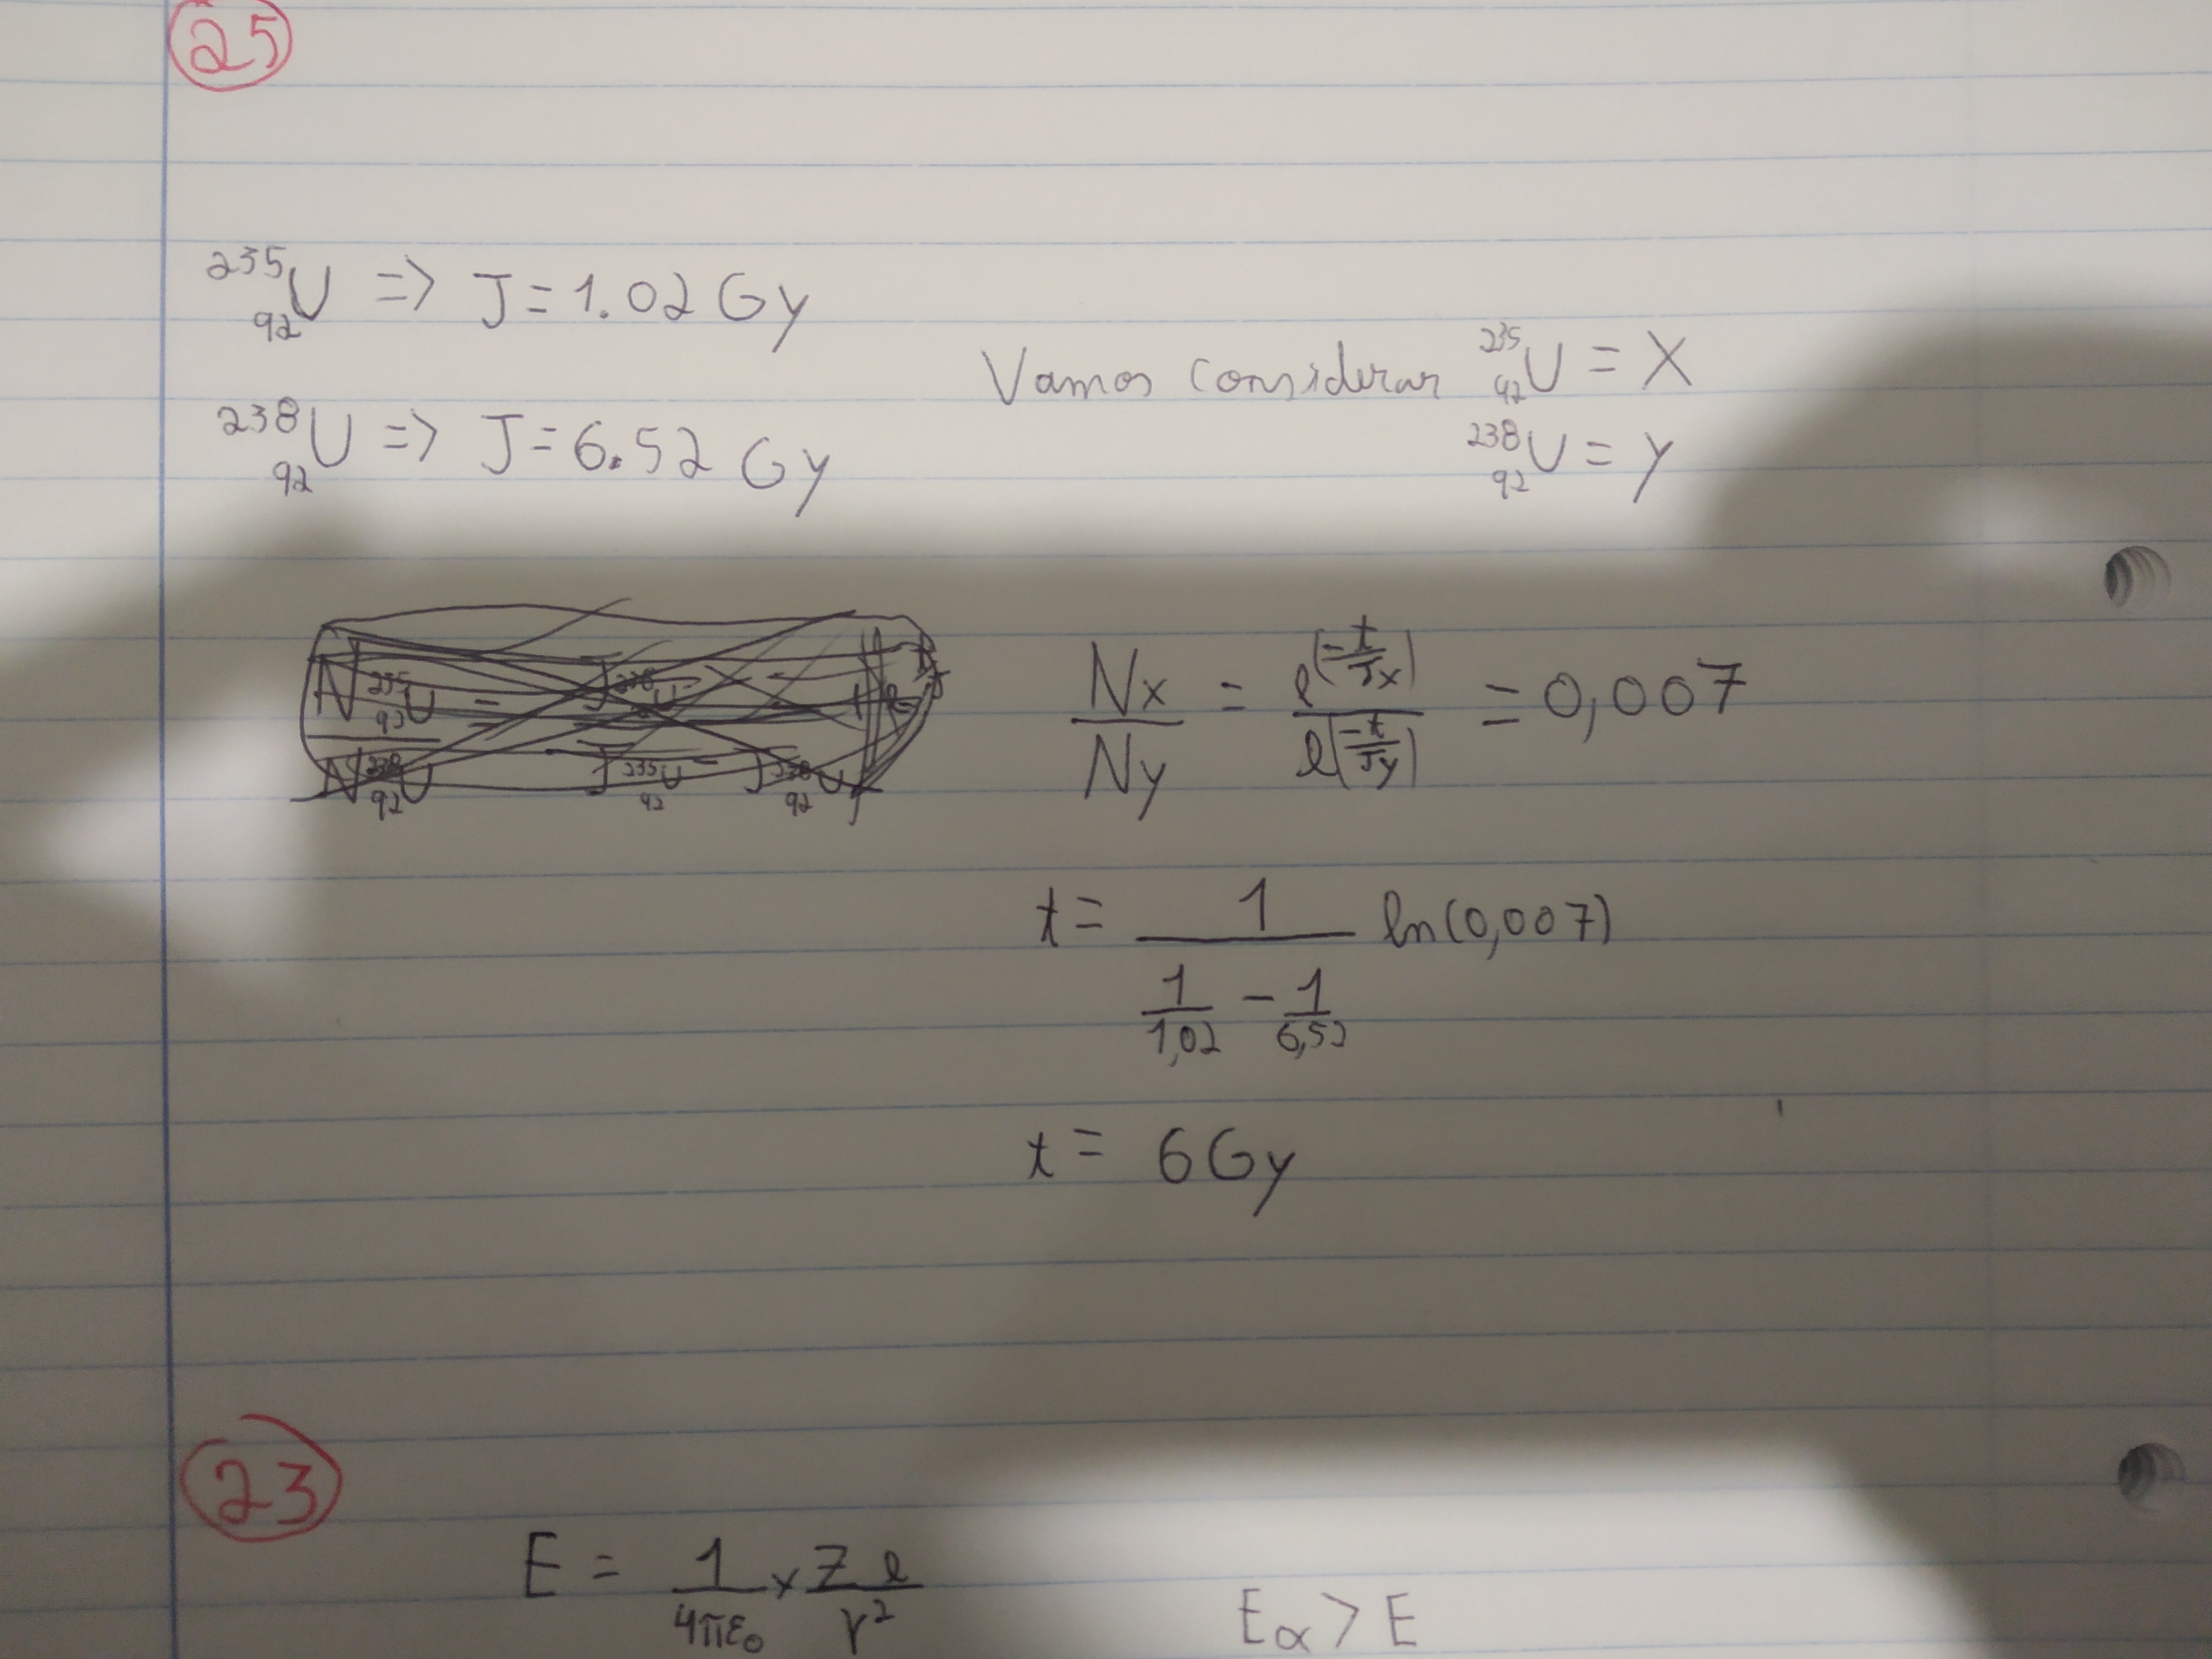 25
²³⁵₉₂U => J = 1.02 Gy
²³⁸₉₂U => J = 6.52 Gy
Vamos considerar ²³⁵₉₂U = X
²³⁸₉₂U = y
Nx/Ny = e^(-t/Jx)/e^(-t/Jy) = 0,007
t = 1/(1/1,02 - 1/6,52) ln(0,007)
t = 6 Gy
23
E = 1/4πε₀ x Z e/r²
Eα > E